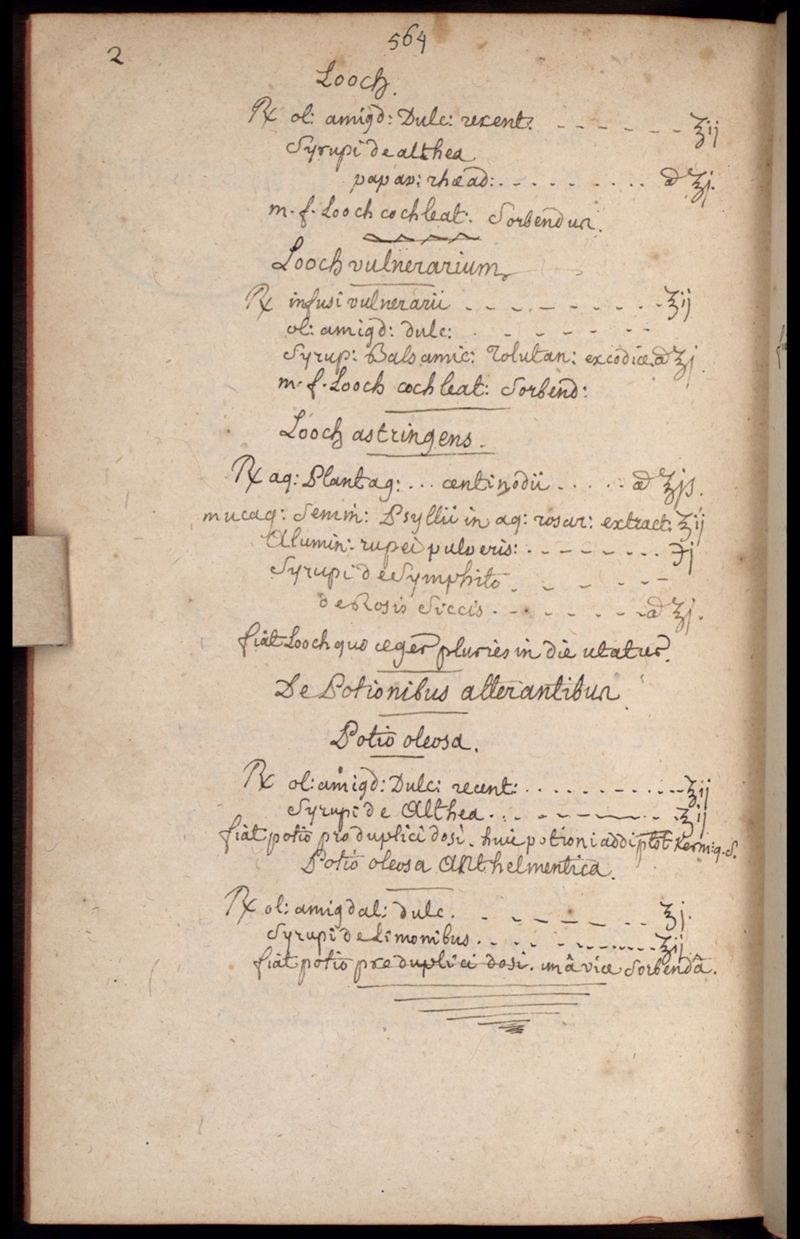 2
564
Looch.
℞ ol: amigd: Dulc: recent: - - - - - - - ℥ij
Syrupi de althea
papav: rhœad: . - . . . . . . . . . ā ℥j.
m. f. Looch cochleat: Sorbendus.
Looch vulnerarium.
℞ infusi vulnerarii - - - - - - - - - ℥ij
ol: amigd: dulc: - - - - - - -
Syrup: Balsamic: Tolutan: ex codice. ā ℥j.
m. f. Looch cochleat: Sorbend:
Looch astringens.
℞ aq: Plantag: ... centinodii . . . . . ā ℥jſ.
mucag: Semin: Psyllii in aq: rosar: extract: ℥ij
Alumin: rupei pulveris: . - - - - - . . . ʒj
Syrupi de Symphito - - - - - -
de Rosis Siccis - - - - - - - ā ℥j.
fiat Looch quo æger pluries in die utatur.
De Potionibus alterantibus.
Potio oleosa.
℞ ol: amigd: Dulc: recent: . . . . . - . . . - - ℥ij
Syrupi de Althea . . . - - - - - . . ℥ij
fiat potio pro duplici dosi. huic potioni addi ptot Kerm: q. S.
Potio oleosa Anthelmentica.
℞ ol: amigdal: dulc. . - - - - . - ℥j.
Syrupi de Limonibus . . . . - . - - . . . . - - ℥ij
fiat potio pro duplici dosi. unâ vice Sorbendâ.